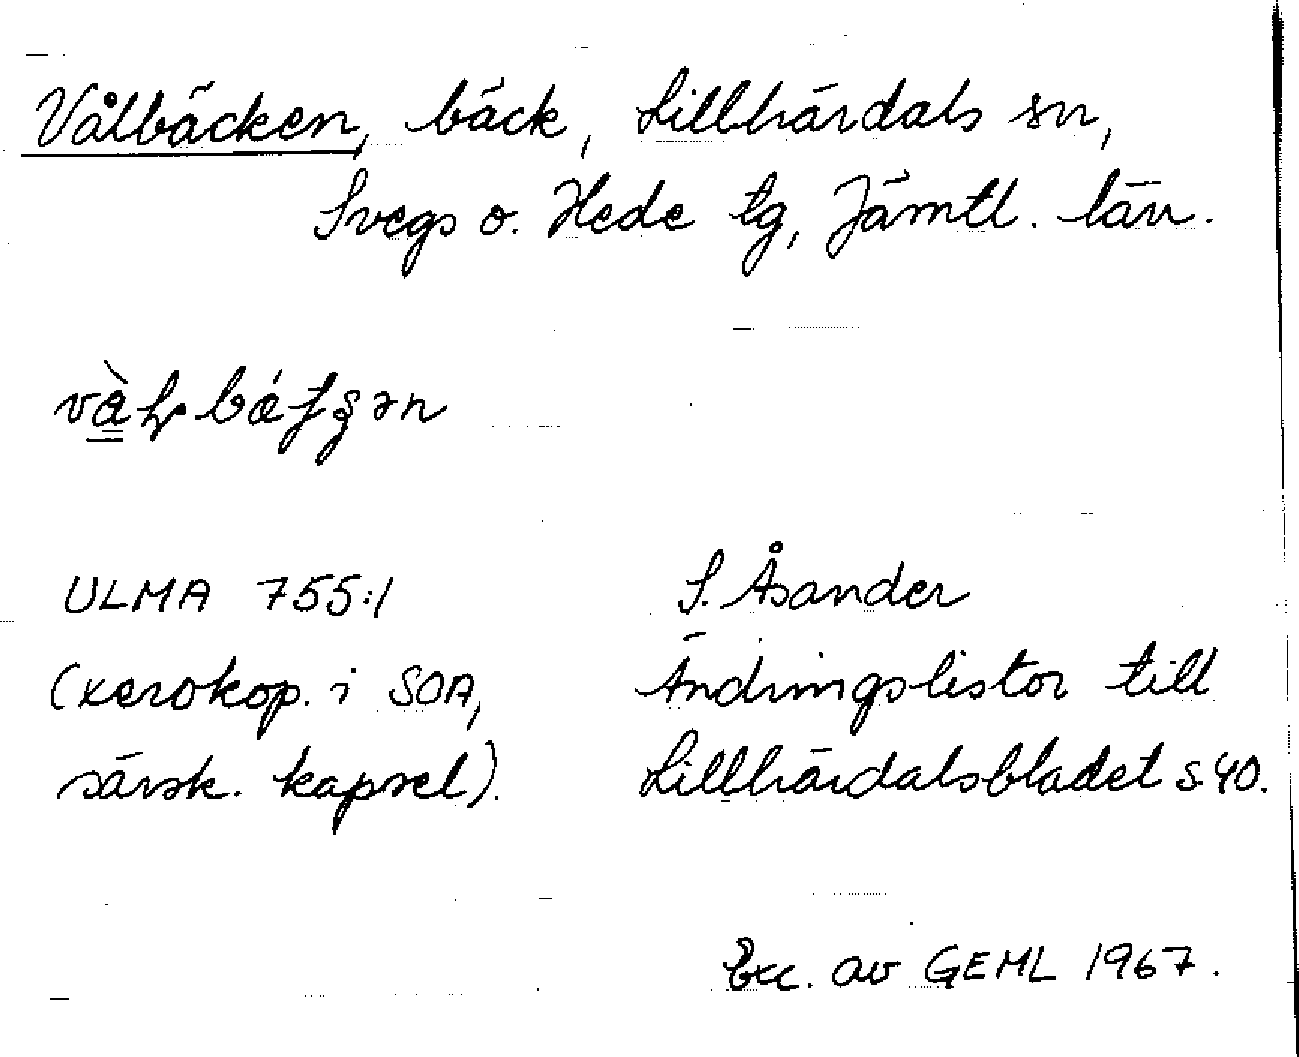 Vålbäcken, bäck, Lillhärdals sn,
Svegs o. Hede tg, Jämtl. län.
ULMA 755:1
S. Åsander
(xerokop. i SOA,
Ändringslistor till
särsk. kapsel).
Lillhärdalsbladet s 40.
Exc. av GEML 1967.